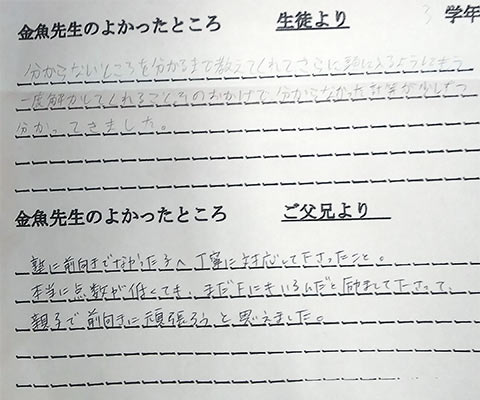 金魚先生のよかったところ 生徒より 3 学年
分からないところを分かるまで教えてくれてさらに頭に入るようにもう
一度解かしてくれるところ。そのおかげで分からなかった計算が少しずつ
分かってきました。
金魚先生のよかったところ ご父兄より
塾に前向きでなかった子へ丁寧に対応して下さったこと。
本当に点数が低くても、まだ上にもいるんだと励まして下さって、
親子で前向きに頑張ろうと思えました。